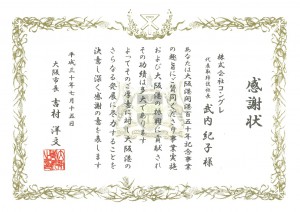 感謝状
株式会社コングレ
代表取締役社長
武内紀子様
あなたは大阪港開港百五十年記念事業
の趣旨にご賛同くださり事業実施
および大阪港の振興に貢献され
その功績は多大であります
よってそのご厚意に対して大阪港の
さらなる発展に尽力することを
決意し深く感謝の意を表します
平成三十年七月十五日
大阪市長 吉村洋文